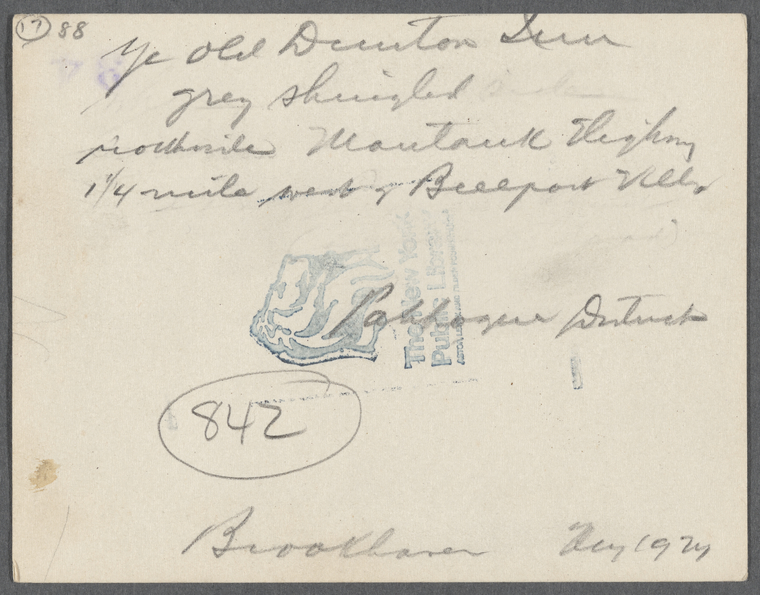 17 88
Ye Old Dunton Inn
grey shingled
northside Montauk Highway
1 1/4 mile west of Bellport Village
The New York
Public Library
Patchogue District
842
Brookhaven